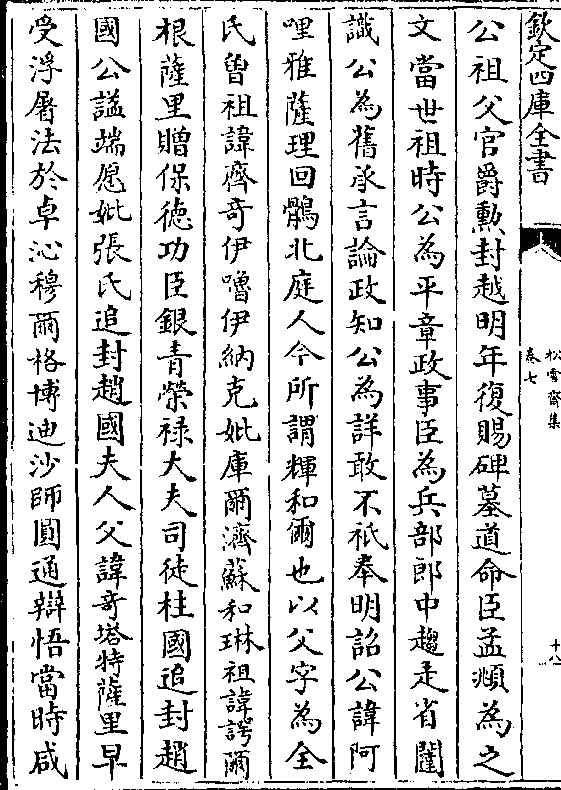 欽定四庫全書
松雪齋集
卷七
十八
公祖父官爵勲封越明年復賜碑墓道命臣孟頫為之
文當世祖時公為平章政事臣為兵部郎中趨走省闥
識公為舊承言論政知公為詳敢不祇奉明詔公諱阿
哩雅薩理回鶻北庭人今所謂輝和爾也以父字為全
氏曽祖諱齊竒伊嚕伊納克妣庫爾濟蘇和琳祖諱諤爾
根薩里贈保徳功臣銀青榮禄大夫司徒柱國追封趙
國公諡端愿妣張氏追封趙國夫人父諱竒塔特薩里早
受浮屠法於卓沁穆爾格博迪沙師圓通辯悟當時咸